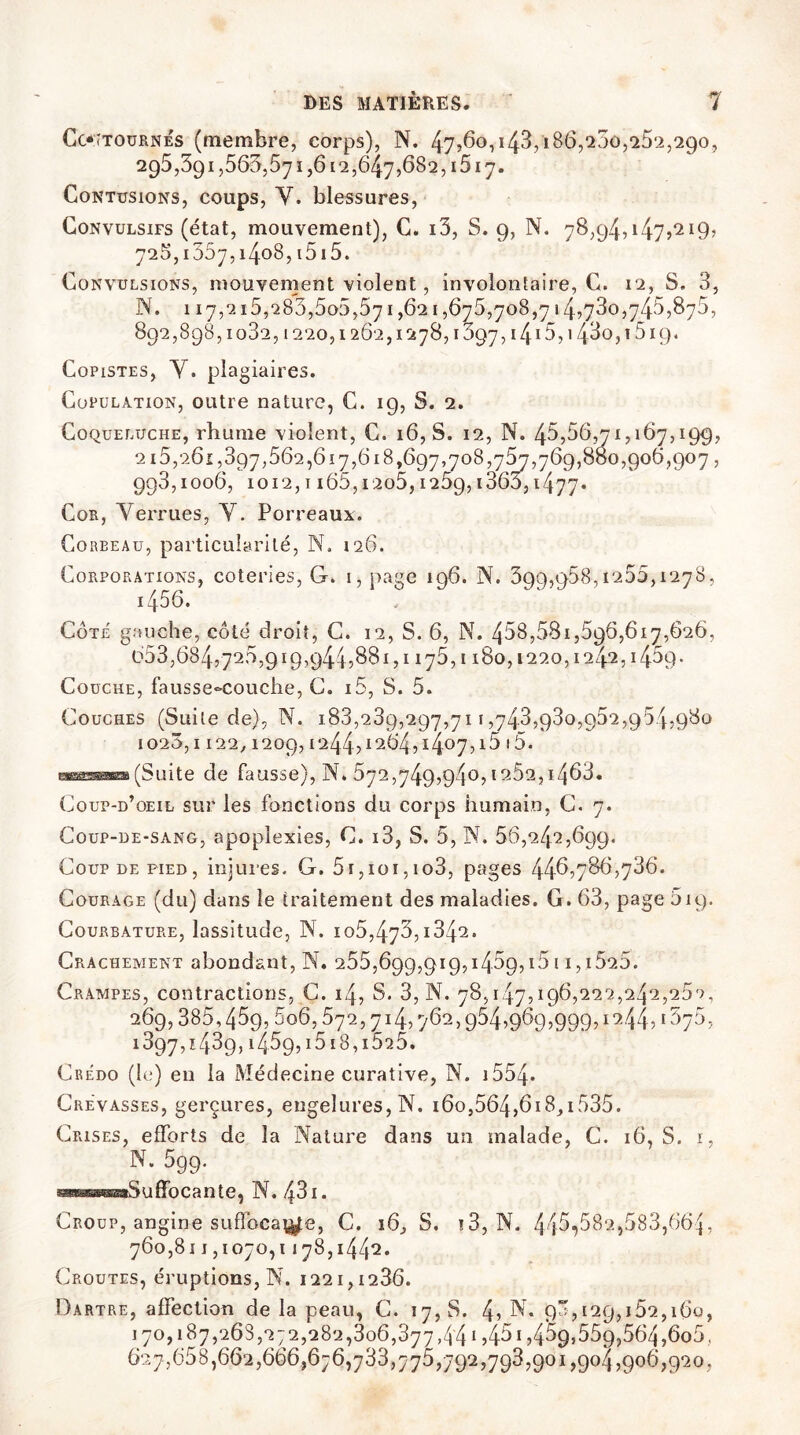 DES MATIÈRES. 7
Contournés (membre, corps), N. 47,60,143,186,230,252,290,
295,391,563,571,612,647,682,1517.
Contusions, coups, V. blessures,
Convulsifs (état, mouvement), C. 13, S. 9, N. 78,94,147,219,
725,1357,1408,1515.
Convulsions, mouvement violent, involontaire, C. 12, S. 3,
N. 117,215,283,505,571,621,675,708,714,730,745,875,
892,898,1032,1220,1262,1278,1397,1415,1430,1519.
Copistes, V. plagiaires.
Copulation, outre nature, C. 19, S. 2.
Coqueluche, rhume violent, C. 16, S. 12, N. 45,56,71,167,199,
215,261,397,562,617,618,697,708,757,769,880,906,907,
993,1006, 1012,1165,1205,1259,1363,1477.
Cor, Verrues, V. Porreaux.
Corbeau, particularité, N. 126.
Corporations, coteries, G. 1, page 196. N. 399,958,1255,1278,
1456.
Côté gauche, côté droit, C. 12, S. 6, N. 458,581,596,617,626,
653,684,725,919,944,881,1175,1180,1220,1242,1459.
Couche, fausse-couche, C. 15, S. 5.
Couches (Suite de), N. 183,239,297,711,743,930,952,954,980
1023,1122,1209,1244,1264,1407,1515.
(Suite de fausse), N. 572,749,940,1252,1463.
Coup-d'oeil sur les fonctions du corps humain, C. 7.
Coup-de-sang, apoplexies, C. 13, S. 5, N. 56,242,699.
Coup de pied, injures. G. 51,101,103, pages 446,786,736.
Courage (du) dans le traitement des maladies. G. 63, page 519.
Courbature, lassitude, N. 105,473,1342.
Crachement abondant, N. 255,699,919,1459,1511,1525.
Crampes, contractions, C. 14, S. 3, N. 78,147,196,222,242,252,
269,385,459,506,572,714,762,954,969,999,1244,1375,
1397,1439,1459,1518,1525.
Crédo (le) en la Médecine curative, N. 1554.
Crévasses, gerçures, engelures, N. 160,564,618,1535.
Crises, efforts de la Nature dans un malade, C. 16, S. 1,
N. 599.
Suffocante, N. 431.
Croup, angine suffocante, C. 16, S. 13, N. 445,582,583,664,
760,811,1070,1178,1442.
Croutes, éruptions, N. 1221,1236.
Dartre, affection de la peau, C. 17, S. 4, N. 93,129,152,160,
170,187,263,272,282,306,377,441,451,459,559,564,605,
627,658,662,666,676,733,775,792,793,901,904,906,920,